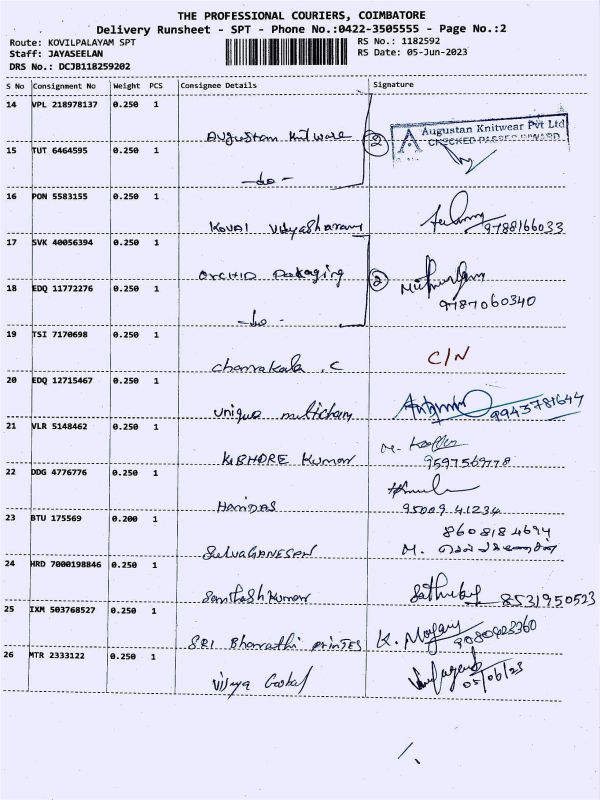 THE PROFESSIONAL COURIERS, COIMBATORE
Delivery Runsheet - SPT - Phone No.:0422-3505555 - Page No.:2
Route: KOVILPALAYAM SPT RS No.: 1182592
Staff: JAYASEELAN RS Date: 05-Jun-2023
DRS No.: DCJB118259202
S No Consignment No Weight PCS Consignee Details Signature
14 VPL 218978137 0.250 1
Augustan Knitware 2 Augustan Knitwear Pvt Ltd
15 TUT 6464595 0.250 1
-do-
16 PON 5583155 0.250 1
KOVAI Vidyashram 9788166033
17 SVK 40056394 0.250 1
ORCHID Packaging 2
18 EDQ 11772276 0.250 1
9787060340
-do-
19 TSI 7170698 0.250 1
C/N
Chanrakala .C
20 EDQ 12715467 0.250 1
unique 9943781644
21 VLR 5148462 0.250 1
KISHORE Kumar 9597569778
22 DDG 4776776 0.250 1
HARIDAS 95009 41234
23 BTU 175569 0.200 1
8608184694
SELVAGANESAN M.
24 HRD 7000198846 0.250 1
Santhosh Kumar 8531950523
25 IXM 503768527 0.250 1
SRI Bharathi PRINTES K. 9080923360
26 MTR 2333122 0.250 1
Vijaya Gopal 05/06/23